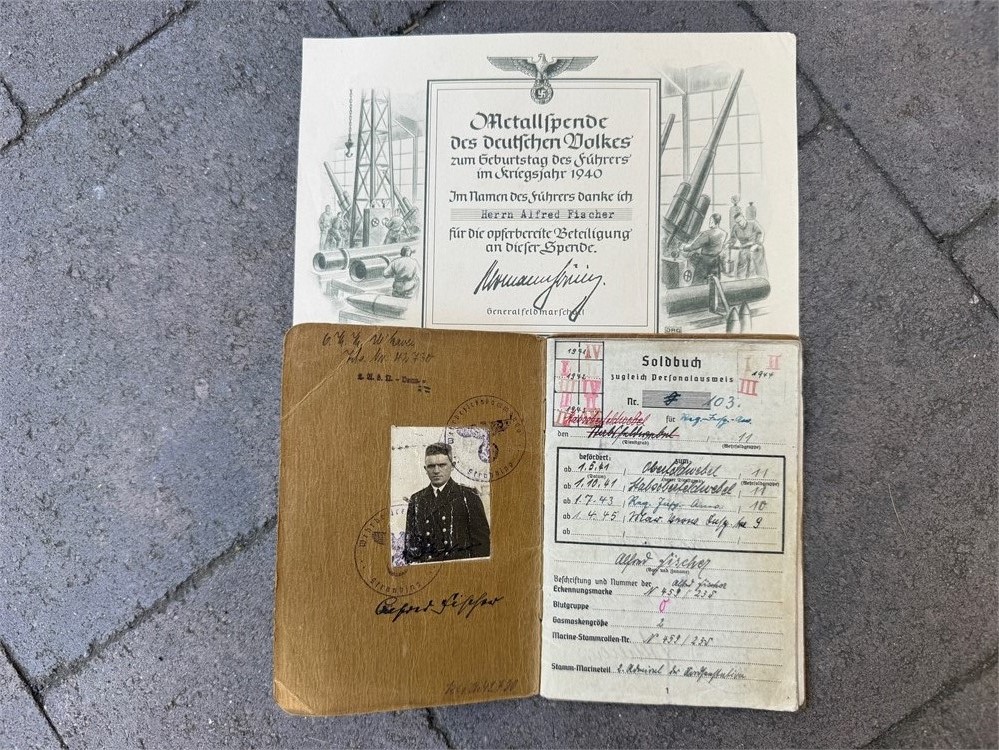 Metallspende
des deutschen Volkes
zum Geburtstag des Führers
im Kriegsjahr 1940
Im Namen des Führers danke ich
Herrn Alfred Fischer
für die opferbereite Beteiligung
an dieser Spende.
Generalfeldmarschall
Alfred Fischer
1941 IV
1942
II
1944
III
Soldbuch
zugleich Personalausweis
Nr. 103.
für
den 11
(Dienstgrad) (Wehrsoldgruppe)
befördert: zum
ab 1.5.41 Oberfeldwebel 11
ab 1.10.41 Stabsoberfeldwebel 11
ab 1.7.43 10
ab 1.4.45 9
ab
Alfred Fischer
(Vor- und Zuname)
Beschriftung und Nummer der Alfred Fischer
Erkennungsmarke N 459 / 235
Blutgruppe 0
Gasmaskengröße 2
Marine-Stammrollen-Nr. N 459 / 235
Stamm-Marineteil 2. Admiral der Nordseestation
1